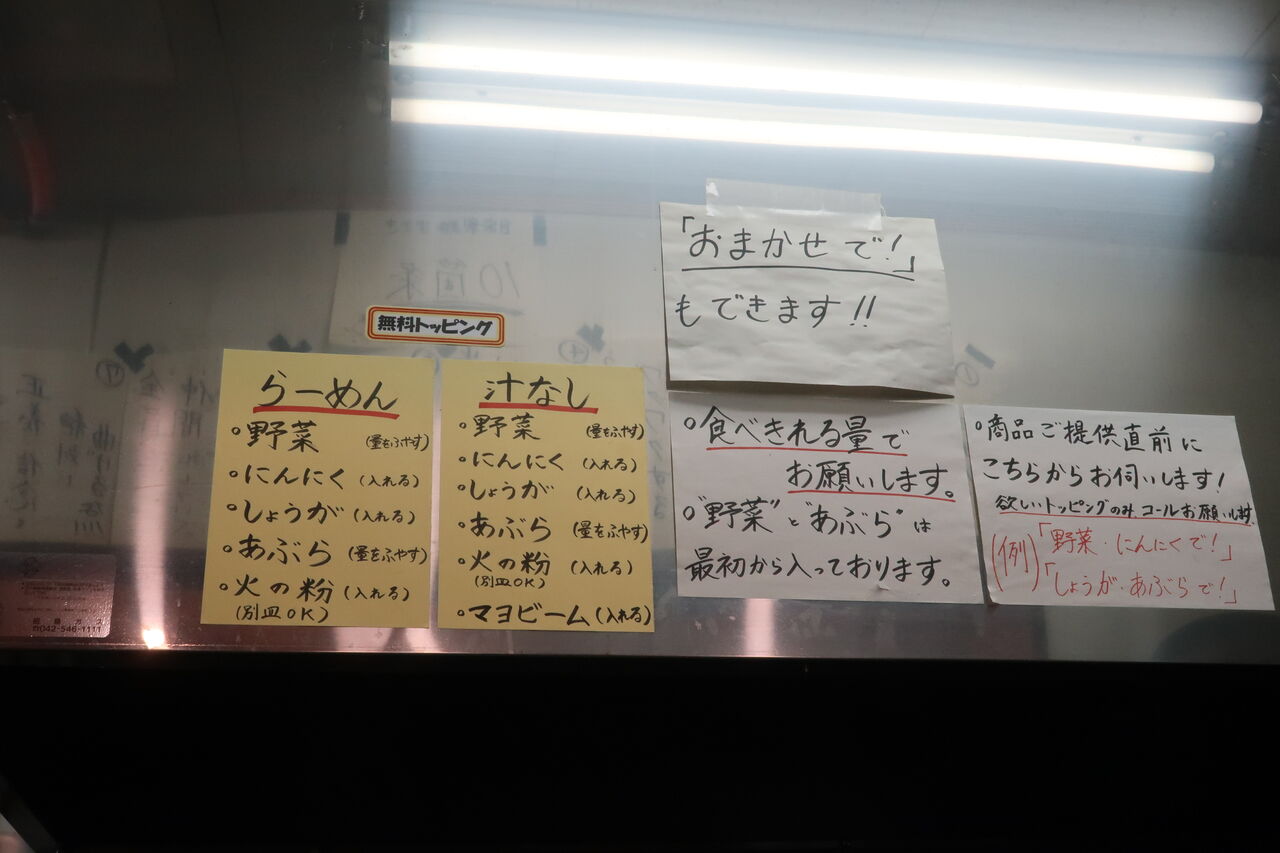 無料トッピング
らーめん
・野菜 (量をふやす)
・にんにく (入れる)
・しょうが (入れる)
・あぶら (量をふやす)
・火の粉 (入れる)
(別皿OK)
汁なし
・野菜 (量をふやす)
・にんにく (入れる)
・しょうが (入れる)
・あぶら (量をふやす)
・火の粉 (入れる)
(別皿OK)
・マヨビーム (入れる)
「おまかせで!」
もできます!!
・食べきれる量で
お願いします。
・"野菜"と"あぶら"は
最初から入っております。
・商品ご提供直前に
こちらからお伺いします!
欲しいトッピングのみ、コールお願いします。
(例)「野菜・にんにくで!」
「しょうが・あぶらで!」
10箇条
☎042-546-1111